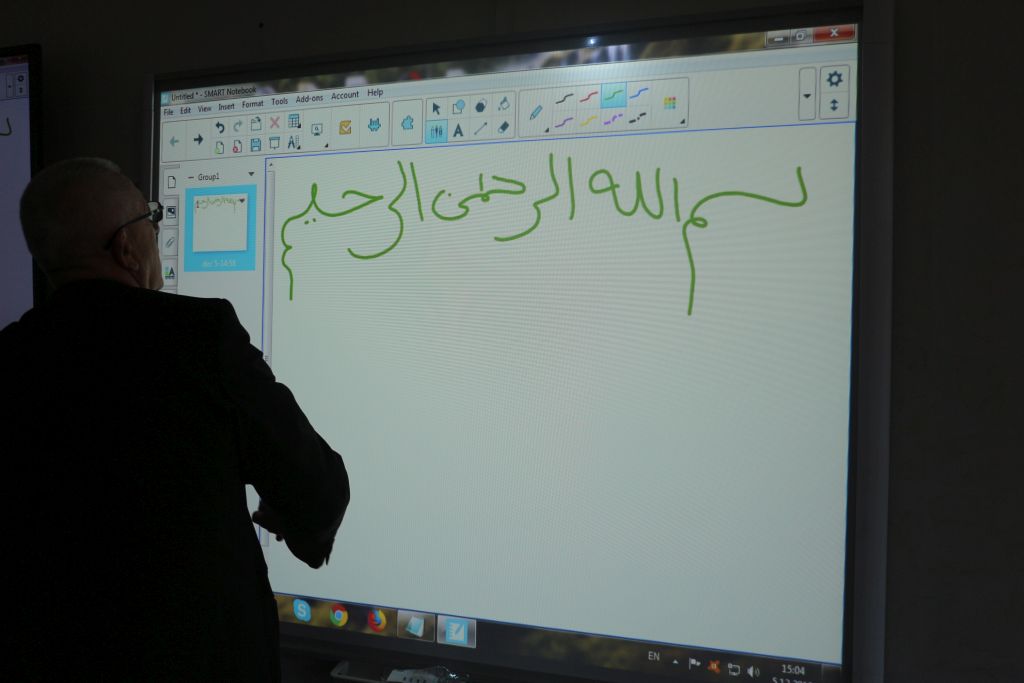 Untitled * - SMART Notebook
File Edit View Insert Format Tools Add-ons Account Help
Group1
بسم الله الرحمن الرحيم
EN
15:04